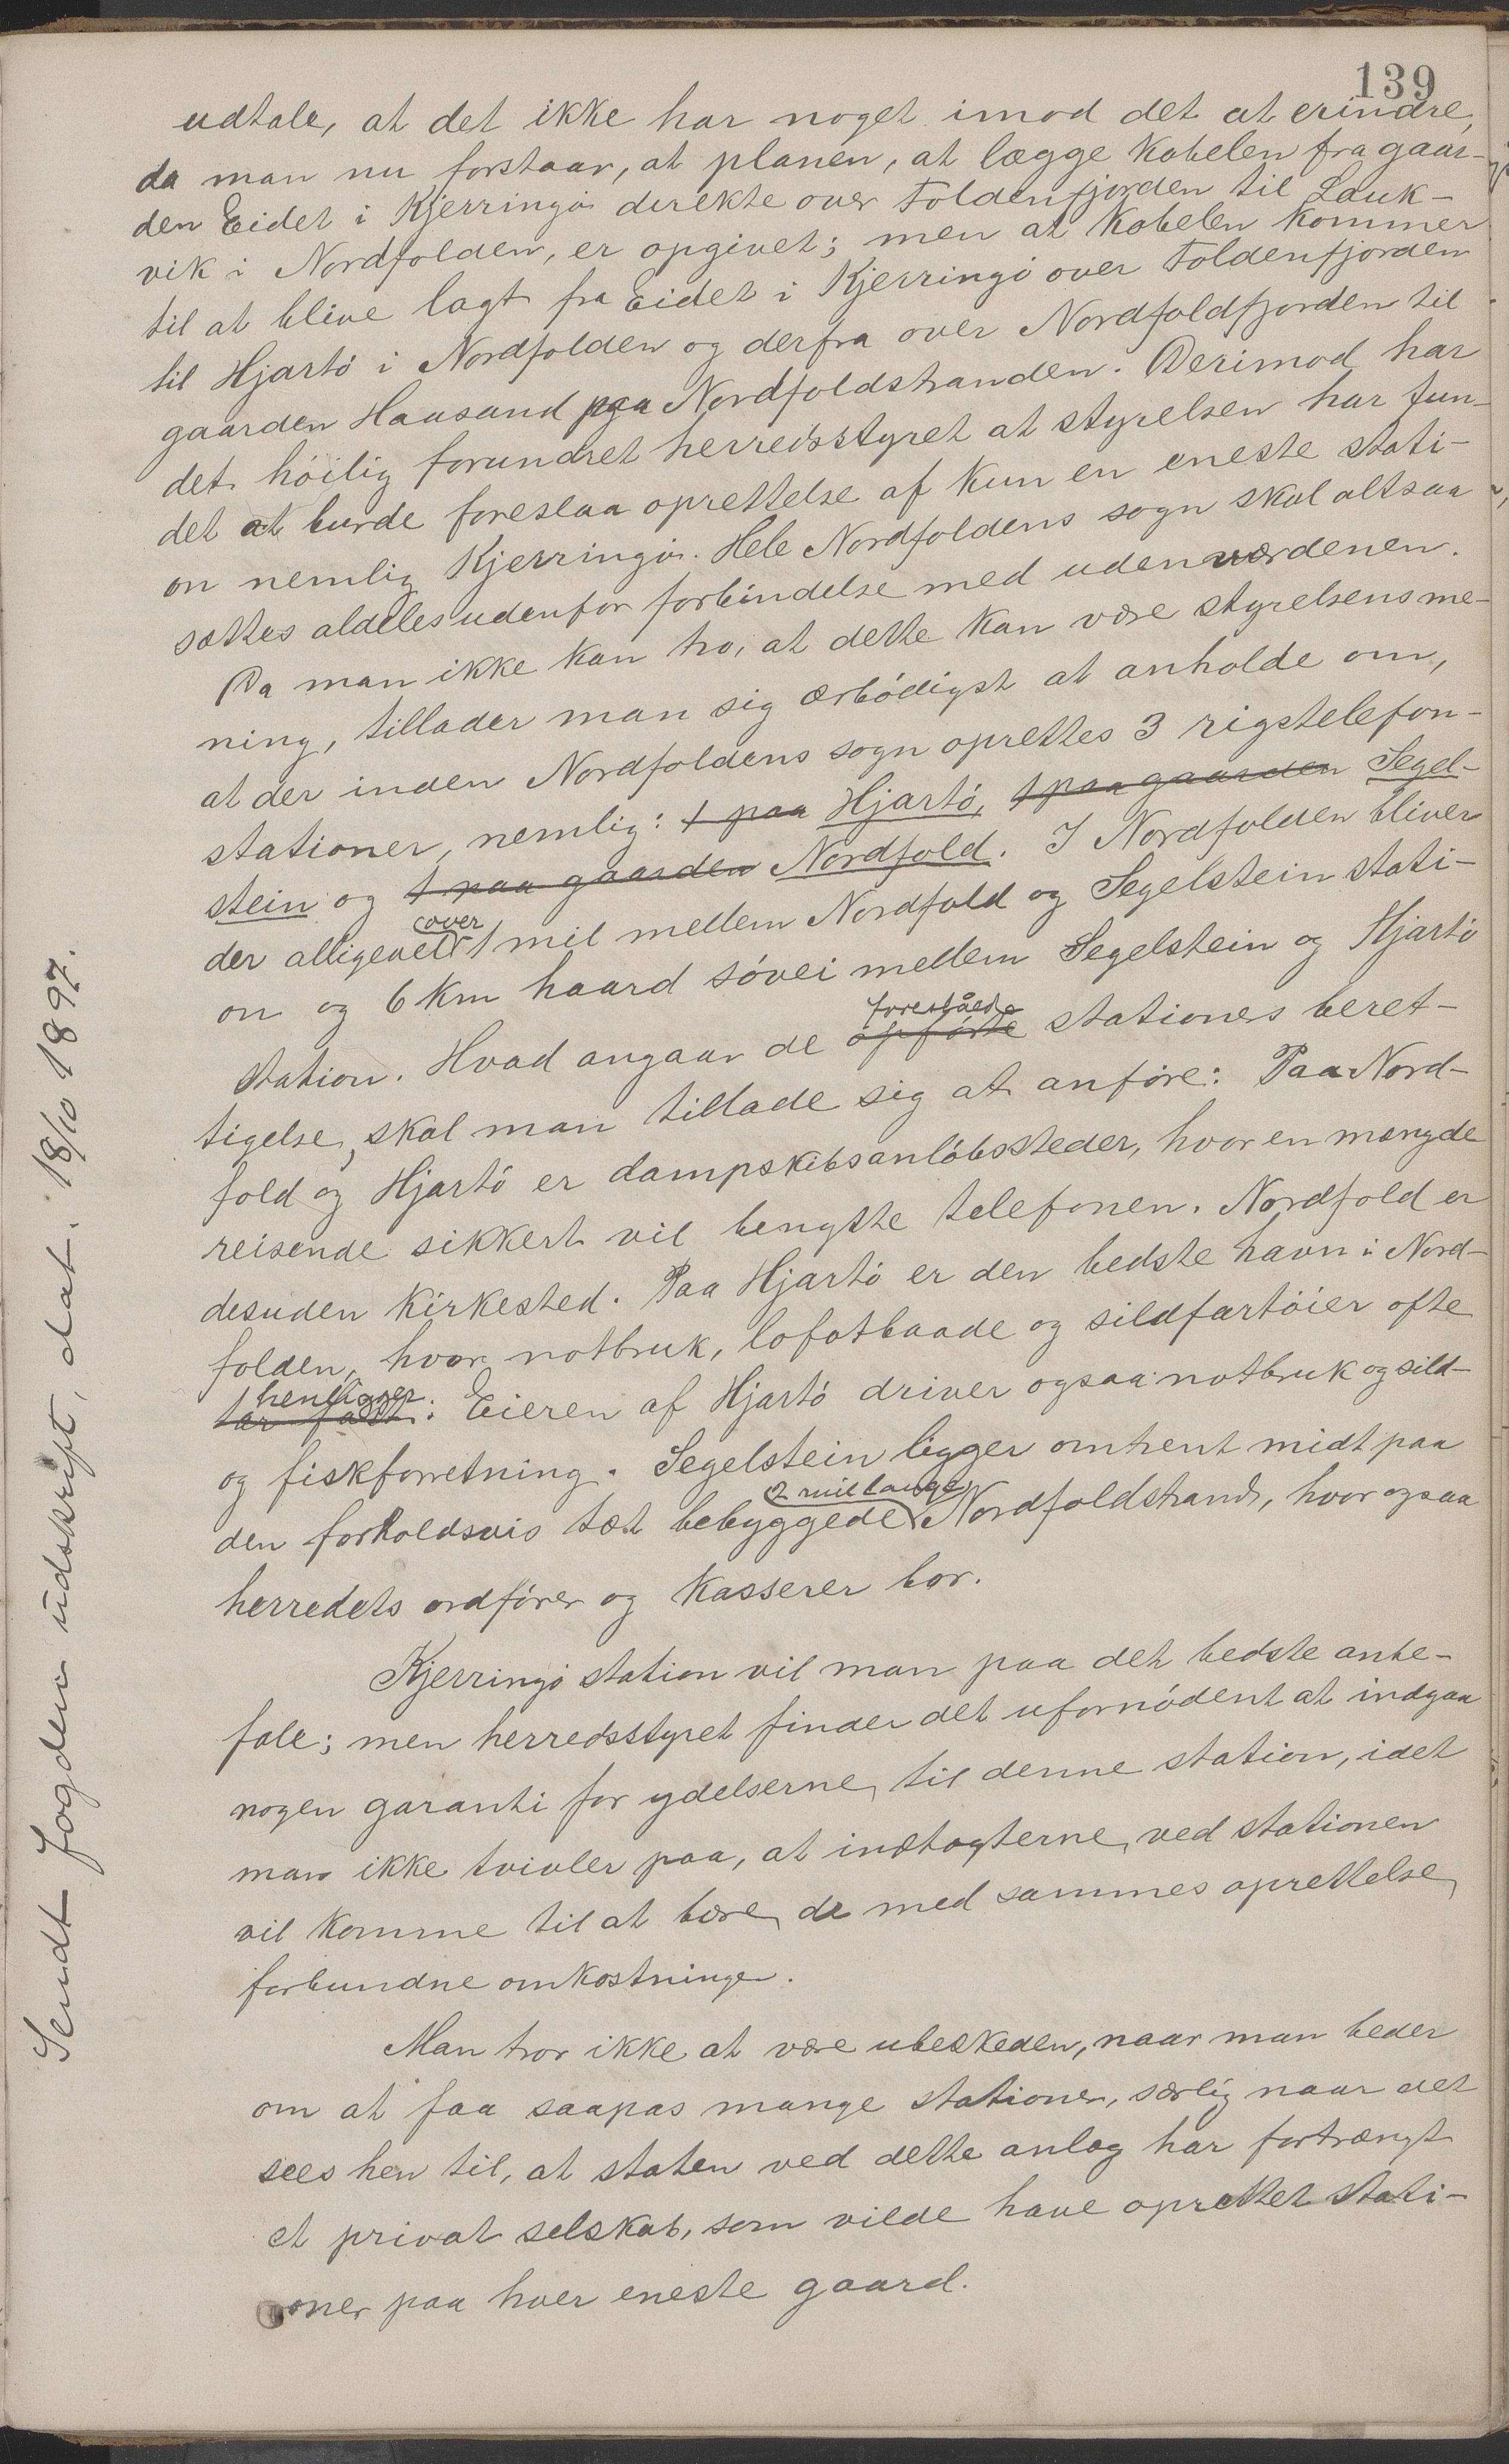 139
udtale, at det ikke har noget imod det at erindre,
da man nu forstaar, at planen, at lægge kabelen fra gaar-
den Eidet i Kjerringö direkte over Foldenfjorden til Lauk-
vik i Nordfolden, er opgivet; men at kabelen kommer
til at blive lagt fra Eidet i Kjerringö over Foldenfjorden
til Hjartö i Nordfolden og derfra over Nordfoldfjorden til
gaarden Haasand paa Nordfoldstranden. Derimod har
det höilig forundret herredsstyret at styrelsen har fun-
det at burde foreslaa oprettelse af kun en eneste stati-
on nemlig Kjerringö. Hele Nordfoldens sogn skal altsaa
sættes aldeles udenfor forbindelse med udenverdenen.
Da man ikke kan tro, at dette kan være styrelsens me-
ning, tillader man sig ærbödigst at anholde om,
at der inden Nordfoldens sogn oprettes 3 rigstelefon-
stationer, nemlig: 1 paa Hjartö, 1 paa gaarden Segel-
stein og 1 paa gaarden Nordfold. I Nordfolden bliver
der alligevel over 1 mil mellem Nordfold og Segelstein stati-
on og 6 km haard sövei mellem Segelstein og Hjartö
station. Hvad angaar de opförte foreslåede stationers beret-
tigelse, skal man tillade sig at anföre: Paa Nord-
fold og Hjartö er dampskibsanlöbssteder, hvor en mængde
reisende sikkert vil benytte telefonen. Nordfold er
desuden kirkested. Paa Hjartö er den bedste havn i Nord-
folden, hvor notbruk, lofotbaade og sildfartöier ofte
tar fast henligger. Eieren af Hjartö driver ogsaa notbruk og sild-
og fiskforretning. Segelstein ligger omtrent midt paa
den forholdsvis tæt bebyggede 2 mil lange Nordfoldstrand, hvor ogsaa
herredets ordförer og kasserer bor.
Kjerringö station vil man paa det bedste anbe-
fale; men herredsstyret finder det ufornödent at indgaa
nogen garanti for ydelserne til denne station, idet
man ikke tvivler paa, at indtægterne ved stationen
vil komme til at bære de med sammes oprettelse
forbundne omkostninger.
Man tror ikke at være ubeskeden, naar man beder
om at faa saapas mange stationer, særlig naar det
sees hen til, at staten ved dette anlæg har fortrængt
et privat selskab, som vilde have oprettet stati-
oner paa hver eneste gaard.
Sendt fogden udskrift, dat. 18/10 1897.